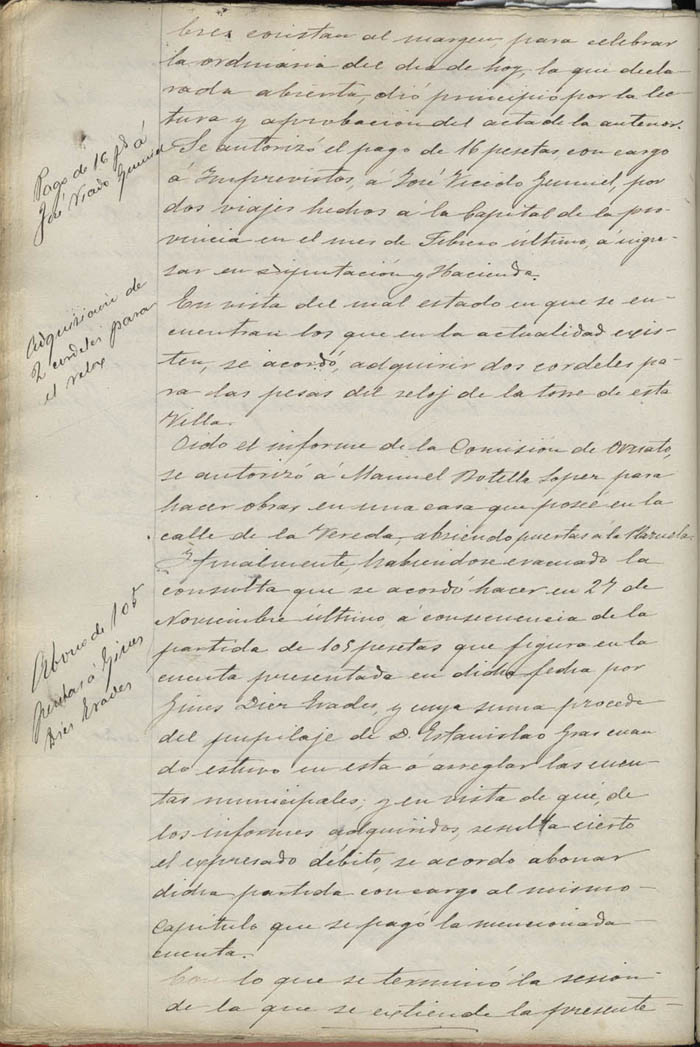 bres constan al margen, para celebrar
la ordinaria del dia de hoy, la que decla-
rada abierta, dió principio por la lec-
tura y aprobacion del acta de la anterior.
Pago de 16 pts á
José Viado Gumiel
Se autorizó el pago de 16 pesetas, con cargo
á Imprevistos, á José Gumiel, por
dos viajes hechos á la Capital de la pro-
vincia en el mes de Febrero último, á ingre-
sar en Diputación y Hacienda.
Adquisicion de
2 cordeles para
el relox
En vista del mal estado en que se en-
cuentran los que en la actualidad exis-
ten, se acordó, adquirir dos cordeles pa-
ra las pesas del reloj de la torre de esta
Villa.
Oido el informe de la Comisión de Ornato,
se autorizó á Manuel Botella Lopez para
hacer obras en una casa que poseé en la
calle de la Vereda, abriendo puertas á la Plazuela.
Y finalmente, habiendose evacuado la
consulta que se acordó hacer en 27 de
Noviembre último á consecuencia de la
Abono de 105
pesetas á Gines
Dies Erades
partida de 105 pesetas que figura en la
cuenta presentada en dicha fecha por
Gines Dier Erades, y cuya suma procede
del pupilaje de D. Estanislao Gras cuan-
do estuvo en esta á arreglar las cuen-
tas municipales; y en vista de que, de
los informes adquiridos, resulta cierto
el expresado débito, se acordo abonar
dicha partida con cargo al mismo
Capítulo que se pagó la mencionada
cuenta.
Con lo que se terminó la sesion
de la que se extiende la presente